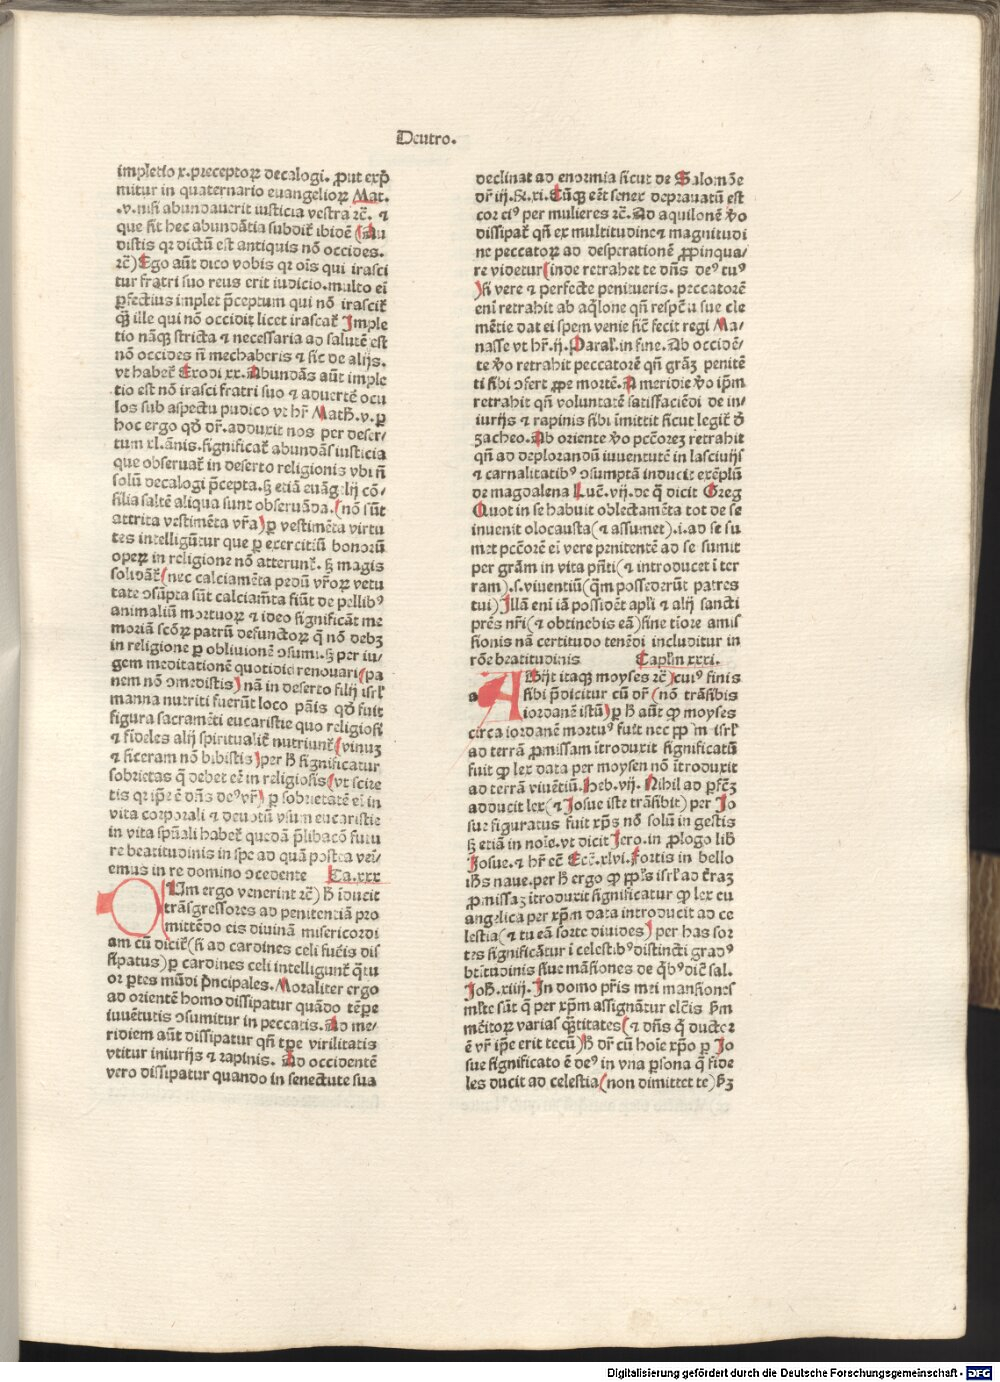 Deutro.
impletio x. preceptoꝝ decalogi. ꝓut exp̄
mitur in quaternario euangelioꝝ Mat.
.v. nisi abundauerit iusticia vestra ⁊c̄. ⁊
que sit hec abundātia subdit᷑ ibidē (Au
distis qꝛ dictū est antiquis nō occides.
⁊c̄) Ego aūt dico vobis qꝛ oīs qui irasci
tur fratri suo reus erit iudicio. multo eī
ꝑfectius implet p̄ceptum qui nō irascit᷑
q̄ꝫ ille qui nō occidit licet irascat᷑ Imple
tio nāqꝫ stricta ⁊ necessaria ad salutē est
nō occides nͫ mechaberis ⁊ sic̄ de alijs.
vt habet᷑ Exodi xx. Abundās aūt imple
tio est nō irasci fratri suo ⁊ aduertē ocu
los sub aspectu pudico vt hr̄ Math. v. ꝑ
hoc ergo qd̄ dr̄. adduxit nos per deser⸗
tum xl. ānis. significat᷑ abundās iusticia
que obseruat᷑ in deserto religionis vbi nͫ
solū decalogi p̄cepta. sꝫ etiā euāgelij cō⸗
silia saltē aliqua sunt obseruāda. (nō sūt
attrita vestimēta vr̄a) ꝑ vestimēta virtu
tes intelligūtur que ꝑ exercitiū bonorū
operꝝ in religione nō atterunt᷑. sꝫ magis
solidāt᷑ (nec calciamēta pedū vr̄oꝝ vetu
tate ↄsūpta sūt calciam̄ta fiūt de pellibꝰ
animaliū mortuoꝝ ⁊ ideo significāt me
moriā scōꝝ patrū defunctoꝝ q̄ nō debꝫ
in religione ꝑ obliuionē ↄsumi. sꝫ per iu⸗
gem meditationē quotidie renouari (pa
nem nō ↄmedistis) nā in deserto filij isrl̄
manna nutriti fuerūt loco pāis qd̄ fuit
figura sacramēti eucaristie quo religiosi
⁊ fideles alij spiritualit᷑ nutriunt᷑ (vinuꝫ
⁊ siceram nō bibistis) per h̄ significatur
sobrietas q̄ debet eē in religiosis (vt scire
tis qꝛ ip̄e ē dn̄s deꝰ vr̄) ꝑ sobrietatē eī in
vita corporali ⁊ deuotū vsum eucaristie
in vita sp̄uali habet᷑ quedā p̄libacō futu
re beatitudinis in spe ad quā postea veī⸗
emus in re domino ↄcedente Ca. xxx
CUm ergo venerint ⁊c̄) h̄ īducit
trāsgressores ad penitentiā pro
mittēdo eis diuinā misericordi
am cū dicit᷑ (si ad cardines celi fuēis dis
sipatus) ꝑ cardines celi intelligunt᷑ q̄tu
or ꝑtes mūdi p̄ncipales. Moraliter ergo
ad orientē homo dissipatur quādo tēpe
iuuētutis ↄsumitur in peccatis. Ad me⸗
ridiem aūt dissipatur qn̄ tp̄e virilitatis
vtitur iniurijs ⁊ rapinis. Ad occidentē
vero dissipatur quando in senectute sua
declinat ad enormia sicut de Salomōe
dr̄ iij. &. xi. Cūqꝫ eēt senex deprauatū est
cor eiꝰ per mulieres ⁊c̄. Ad aquilonē ꝟo
dissipat᷑ qn̄ ex multitudine ⁊ magnitudi
ne peccatoꝝ ad desperationē ꝓpinqua⸗
re videtur (inde retrahet te dn̄s deꝰ tuꝰ
)si vere ⁊ perfecte penitueris. peccatorē
enī retrahit ab aq̄lone qn̄ respc̄u sue cle
mētie dat ei spem venie sic̄ fecit regi Ma⸗
nasse vt hr̄. ij. Paral᷑. in fine. Ab occidē⸗
te ꝟo retrahit peccatorē qn̄ gr̄aꝫ penitē
ti sibi ↄfert ꝓpe mortē. A meridie ꝟo ip̄m
retrahit qn̄ voluntatē satisfaciēdi de in⸗
iurijs ⁊ rapinis sibi īmittit sicut legit᷑ d̄
zacheo. Ab oriente ꝟo pc̄tōreꝫ retrahit
qn̄ ad deplorandū iuuentutē in lasciuijs
⁊ carnalitatibꝰ ↄsumptā inducit exēplū
de magdalena Luc̄. vij. de q̄ dicit Greg
Quot in se habuit oblectamēta tot de se
inuenit olocausta (⁊ assumet). i. ad se su
met pc̄tōrē eī vere penitentē ad se sumit
per grām in vita pn̄ti (⁊ introducet ī ter
ram). s. viuentiū (q̄m possederūt patres
tui) Illā enī iā possidēt apl̄i ⁊ alij sancti
prēs nr̄i (⁊ obtinebis eā) sine tiore amis
sionis nā certitudo tenēdi includitur in
rōe beatitudinis Capl̄m xxxi.
a ABijt itaqꝫ moyses ⁊c̄) cuiꝰ finis
sibi p̄dicitur cū dr̄ (nō trāsibis
iordanē istū) ꝑ h̄ aūt ꝙ moyses
circa iordanē mortuꝰ fuit nec ppl̄m isrl̄
ad terrā ꝓmissam ītroduxit significatū
fuit ꝙ lex data per moysen nō ītroduxit
ad terrā viuētiū. Heb. vij. Nihil ad ꝑfc̄ꝫ
adducit lex (⁊ Josue iste trāsibit) per Jo
sue figuratus fuit xp̄s nō solū in gestis
sꝫ etiā in noīe. vt dicit Jero. in ꝓlogo lib̄
Josue. ⁊ hr̄ cē Ecc̄. xlvi. Fortis in bello
ih̄s naue. per h̄ ergo ꝙ ppl̄s isrl̄ ad t᷑raꝫ
ꝓmissaꝫ ītroduxit significatur ꝙ lex eu
angelica per xp̄m data introducit ad ce
lestia (⁊ tu eā sorte diuides) per has sor
tes significātur ī celestibꝰ distincti gradꝰ
bt̄itudinis siue māsiones de q̄bꝰ dic̄ sal.
Joh̄. xiiij. In domo pr̄is mei mansiones
ml̄te sūt q̄ per xp̄m assignātur elc̄is hm̄
mēitoꝝ varias q̄ntitates (⁊ dn̄s q̄ ductor
ē vr̄ ip̄e erit tecū) h̄ dr̄ cū hoīe xp̄o ꝑ Jo
sue significato ē deꝰ in vna ꝑsona q̄ fide
les ducit ad celestia (non dimittet te) hꝫ
Digitalisierung gefördert durch die Deutsche Forschungsgemeinschaft - DFG